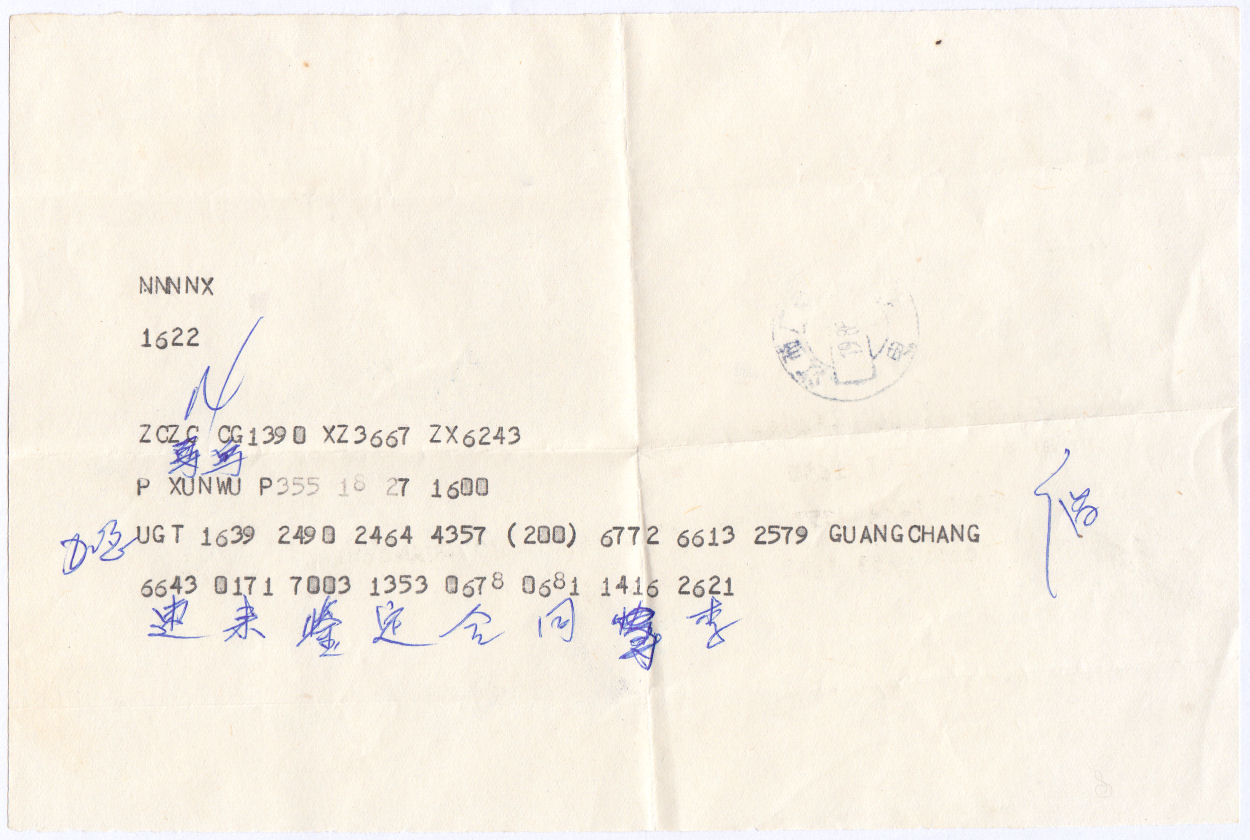 NNNNX
1622
ZCZC CG1390 XZ3667 ZX6243
寻乌
P XUNWU P355 18 27 1600
加急
UGT 1639 2490 2464 4357 (200) 6772 6613 2579 GUANGCHANG
6643 0171 7003 1353 0678 0681 1416 2621
速来鉴定合同寻李